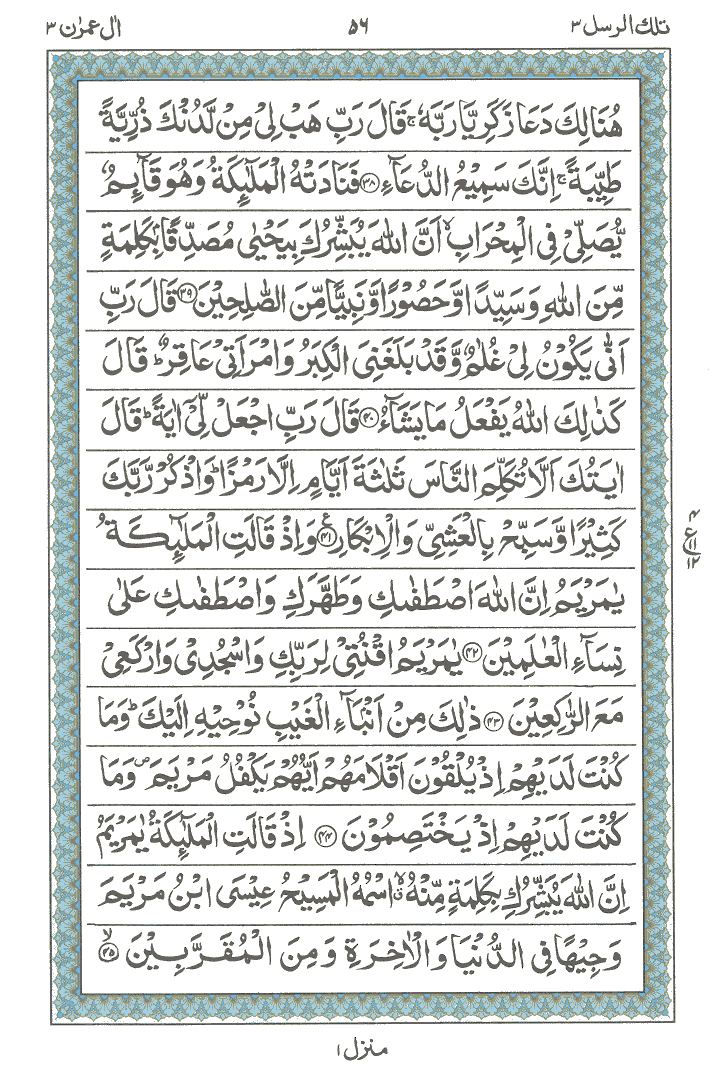 تلك الرسل ٣
٥٦
اٰل عمرٰن ٣
هُنَالِكَ دَعَا زَكَرِيَّا رَبَّهٗ ۚ قَالَ رَبِّ هَبْ لِيْ مِنْ لَّدُنْكَ ذُرِّيَّةً
طَيِّبَةً ۚ اِنَّكَ سَمِيْعُ الدُّعَآءِ ﴿٣٨﴾ فَنَادَتْهُ الْمَلٰٓئِكَةُ وَهُوَ قَآئِمٌ
يُّصَلِّيْ فِي الْمِحْرَابِ ۙ اَنَّ اللّٰهَ يُبَشِّرُكَ بِيَحْيٰى مُصَدِّقًاۢ بِكَلِمَةٍ
مِّنَ اللّٰهِ وَسَيِّدًا وَّحَصُوْرًا وَّنَبِيًّا مِّنَ الصّٰلِحِيْنَ ﴿٣٩﴾ قَالَ رَبِّ
اَنّٰى يَكُوْنُ لِيْ غُلٰمٌ وَّقَدْ بَلَغَنِيَ الْكِبَرُ وَامْرَاَتِيْ عَاقِرٌ ؕ قَالَ
كَذٰلِكَ اللّٰهُ يَفْعَلُ مَا يَشَآءُ ﴿٤٠﴾ قَالَ رَبِّ اجْعَلْ لِّيْٓ اٰيَةً ؕ قَالَ
اٰيَتُكَ اَلَّا تُكَلِّمَ النَّاسَ ثَلٰثَةَ اَيَّامٍ اِلَّا رَمْزًا ؕ وَاذْكُرْ رَّبَّكَ
كَثِيْرًا وَّسَبِّحْ بِالْعَشِيِّ وَالْاِبْكَارِ ﴿٤١﴾ ع وَاِذْ قَالَتِ الْمَلٰٓئِكَةُ
٤
ع ١١
١٢
يٰمَرْيَمُ اِنَّ اللّٰهَ اصْطَفٰىكِ وَطَهَّرَكِ وَاصْطَفٰىكِ عَلٰى
نِسَآءِ الْعٰلَمِيْنَ ﴿٤٢﴾ يٰمَرْيَمُ اقْنُتِيْ لِرَبِّكِ وَاسْجُدِيْ وَارْكَعِيْ
مَعَ الرّٰكِعِيْنَ ﴿٤٣﴾ ذٰلِكَ مِنْ اَنْۢبَآءِ الْغَيْبِ نُوْحِيْهِ اِلَيْكَ ؕ وَمَا
كُنْتَ لَدَيْهِمْ اِذْ يُلْقُوْنَ اَقْلَامَهُمْ اَيُّهُمْ يَكْفُلُ مَرْيَمَ ۪ وَمَا
كُنْتَ لَدَيْهِمْ اِذْ يَخْتَصِمُوْنَ ﴿٤٤﴾ اِذْ قَالَتِ الْمَلٰٓئِكَةُ يٰمَرْيَمُ
اِنَّ اللّٰهَ يُبَشِّرُكِ بِكَلِمَةٍ مِّنْهُ ۖۗ اسْمُهُ الْمَسِيْحُ عِيْسَى ابْنُ مَرْيَمَ
وَجِيْهًا فِي الدُّنْيَا وَالْاٰخِرَةِ وَمِنَ الْمُقَرَّبِيْنَ ﴿٤٥﴾ ۙ
منزل ١